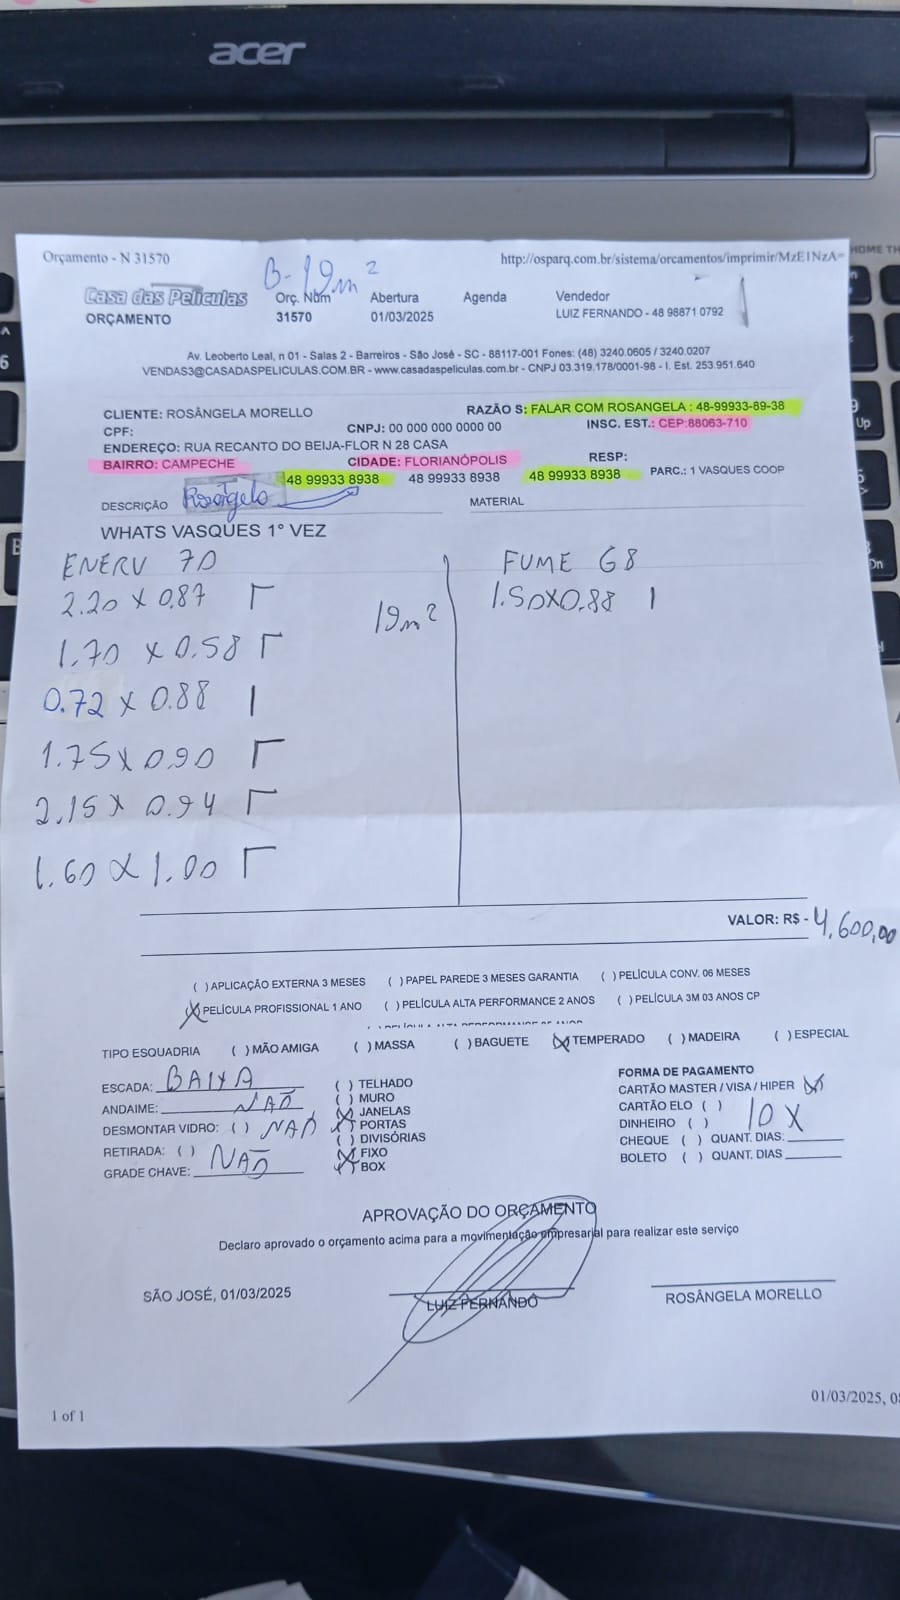 acer
HOME TH
Orçamento - N 31570
http://osparq.com.br/sistema/orcamentos/imprimir/MzE1NzA=
B- 19m²
Casa das Películas
ORÇAMENTO
Orç. Num Abertura Agenda Vendedor
31570 01/03/2025 LUIZ FERNANDO - 48 98871 0792
Av. Leoberto Leal, n 01 - Salas 2 - Barreiros - São José - SC - 88117-001 Fones: (48) 3240.0605 / 3240.0207
VENDAS3@CASADASPELICULAS.COM.BR - www.casadaspeliculas.com.br - CNPJ 03.319.178/0001-98 - I. Est. 253.951.640
CLIENTE: ROSÂNGELA MORELLO RAZÃO S: FALAR COM ROSANGELA : 48-99933-89-38
CPF: CNPJ: 00 000 000 0000 00 INSC. EST.: CEP:88063-710
ENDEREÇO: RUA RECANTO DO BEIJA-FLOR N 28 CASA
BAIRRO: CAMPECHE CIDADE: FLORIANÓPOLIS RESP:
48 99933 8938 48 99933 8938 48 99933 8938 PARC.: 1 VASQUES COOP
DESCRIÇÃO Rosângela MATERIAL
WHATS VASQUES 1° VEZ
ENERV 70 FUME G8
2.20 x 0.87 1.50x0.88
19m²
1.70 x 0.58
0.72 x 0.88
1.75 x 0.90
2.15 x 0.94
1.60 x 1.00
VALOR: R$ - 4.600,00
( ) APLICAÇÃO EXTERNA 3 MESES ( ) PAPEL PAREDE 3 MESES GARANTIA ( ) PELÍCULA CONV. 06 MESES
(X) PELÍCULA PROFISSIONAL 1 ANO ( ) PELÍCULA ALTA PERFORMANCE 2 ANOS ( ) PELÍCULA 3M 03 ANOS CP
TIPO ESQUADRIA ( ) MÃO AMIGA ( ) MASSA ( ) BAGUETE (X) TEMPERADO ( ) MADEIRA ( ) ESPECIAL
ESCADA: BAIXA
ANDAIME: NAÕ
DESMONTAR VIDRO: ( ) NAÕ
RETIRADA: ( )
GRADE CHAVE: NAÕ
( ) TELHADO
( ) MURO
(X) JANELAS
(X) PORTAS
( ) DIVISÓRIAS
(X) FIXO
(X) BOX
FORMA DE PAGAMENTO
CARTÃO MASTER / VISA / HIPER (X)
CARTÃO ELO ( )
DINHEIRO ( ) 10 X
CHEQUE ( ) QUANT. DIAS:
BOLETO ( ) QUANT. DIAS
APROVAÇÃO DO ORÇAMENTO
Declaro aprovado o orçamento acima para a movimentação empresarial para realizar este serviço
SÃO JOSÉ, 01/03/2025 LUIZ FERNANDO ROSÂNGELA MORELLO
1 of 1
01/03/2025, 0